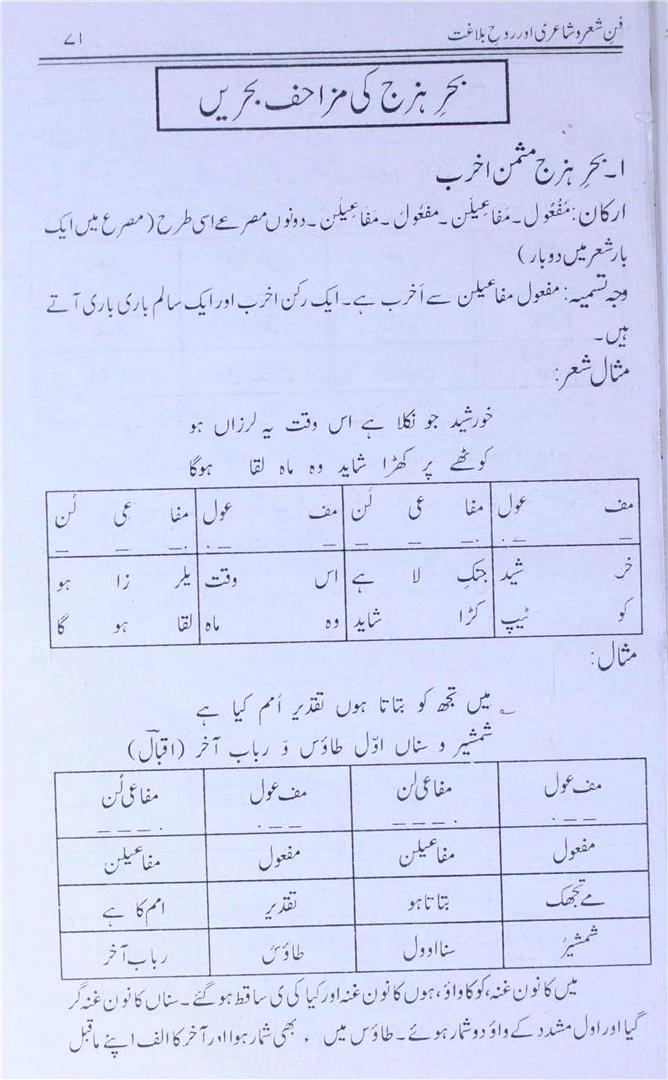 فنِ شعر و شاعری اور روحِ بلاغت ۷۱
بحرِ ہزج کی مزاحف بحریں
۱۔ بحرِ ہزج مثمن اخرب
ارکان: مَفْعُول۔ مَفَاعِیلَن۔ مفعُولُ۔ مفَاعِیلَن۔ دونوں مصرعے اسی طرح (مصرع میں ایک
بار شعر میں دو بار)
وجہ تسمیہ: مفعول مفاعیلن سے اَخرب ہے۔ ایک رکن اخرب اور ایک سالم باری باری آتے
ہیں۔
مثال شعر:
خورشید جو نکلا ہے اس وقت یہ لرزاں ہو
کوٹھے پر کھڑا شاید وہ ماہ لقا ہوگا
مف عول مفا عی لُن مف عول مفا عی لُن
_ _ . . _ _ _ _ _ . . _ _ _
خر شید جنکِ لا ہے اس وقت یلر زا ہو
کو ٹیپ کڑا شاید وہ ماہ لقا ہو گا
مثال:
؎ میں تجھ کو بتاتا ہوں تقدیر اُمم کیا ہے
شمشیر و سناں اوّل طاؤس وَ رباب آخر (اقبالؔ)
مف عول مفاعی لن مف عول مفاعی لُن
_ _ . . _ _ _ _ _ . . _ _ _
مفعول مفاعیلن مفعول مفاعیلن
مے تجھک بتاتا ہو تقدیر امم کا ہے
شمشیرُ سنا اوول طاؤسُ رباب آخر
میں کا نون غنہ، کو کا واؤ، ہوں کا نون غنہ اور کیا کی ی ساقط ہو گئے۔ سناں کا نون غنہ گر
گیا اور اول مشدد کے واؤ دو شمار ہوئے۔ طاؤس میں ء بھی شمار ہوا اور آخر کا الف اپنے ماقبل